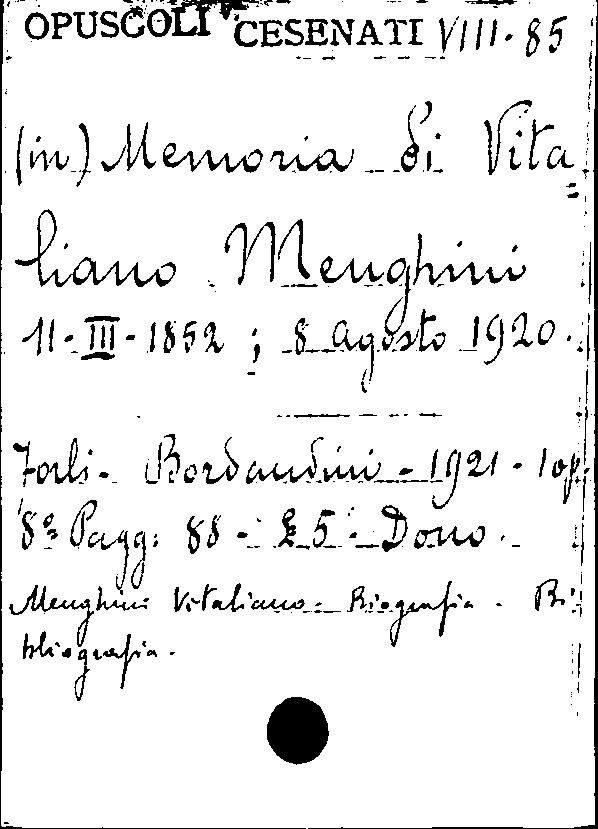 OPUSCOLI CESENATI VIII-85
(in) Memoria di Vita=
liano Menghini
11-III-1852 ; 8 agosto 1920.
Forlì- Bordandini - 1921 - 1 op.
8º Pagg: 88 - £ 5 - Dono.
Menghini Vitaliano - Biografia - Bi-
bliografia.